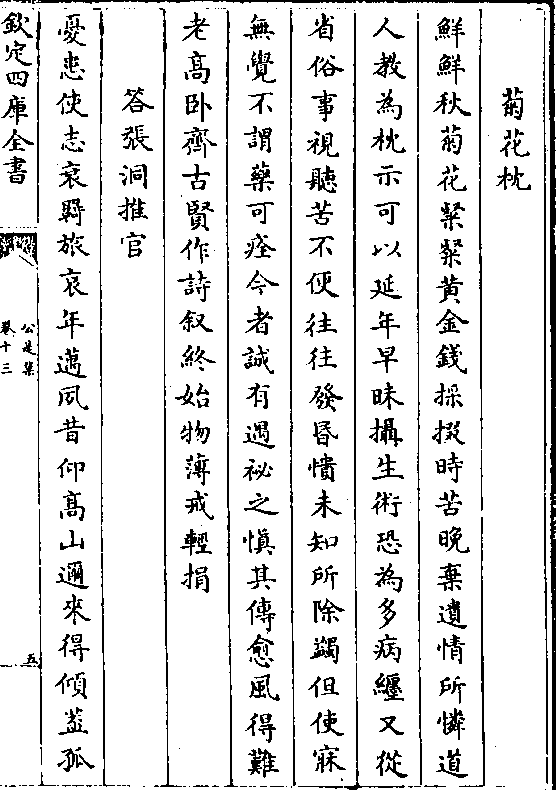 菊花枕
鮮鮮秋菊花粲粲黄金錢採掇時苦晚棄遺情所憐道
人教為枕示可以延年早昧攝生術恐為多病纏又從
省俗事視聽苦不便往往發昏憒未知所除蠲但使寐
無覺不謂藥可痊今者誠有遇祕之慎其傳愈風得難
老高卧齊古賢作詩叙終始物薄戒輕捐
答張洞推官
憂患使志衰羇旅哀年邁夙昔仰高山邇來得傾蓋孤
欽定四庫全書
公是集
卷十三
五